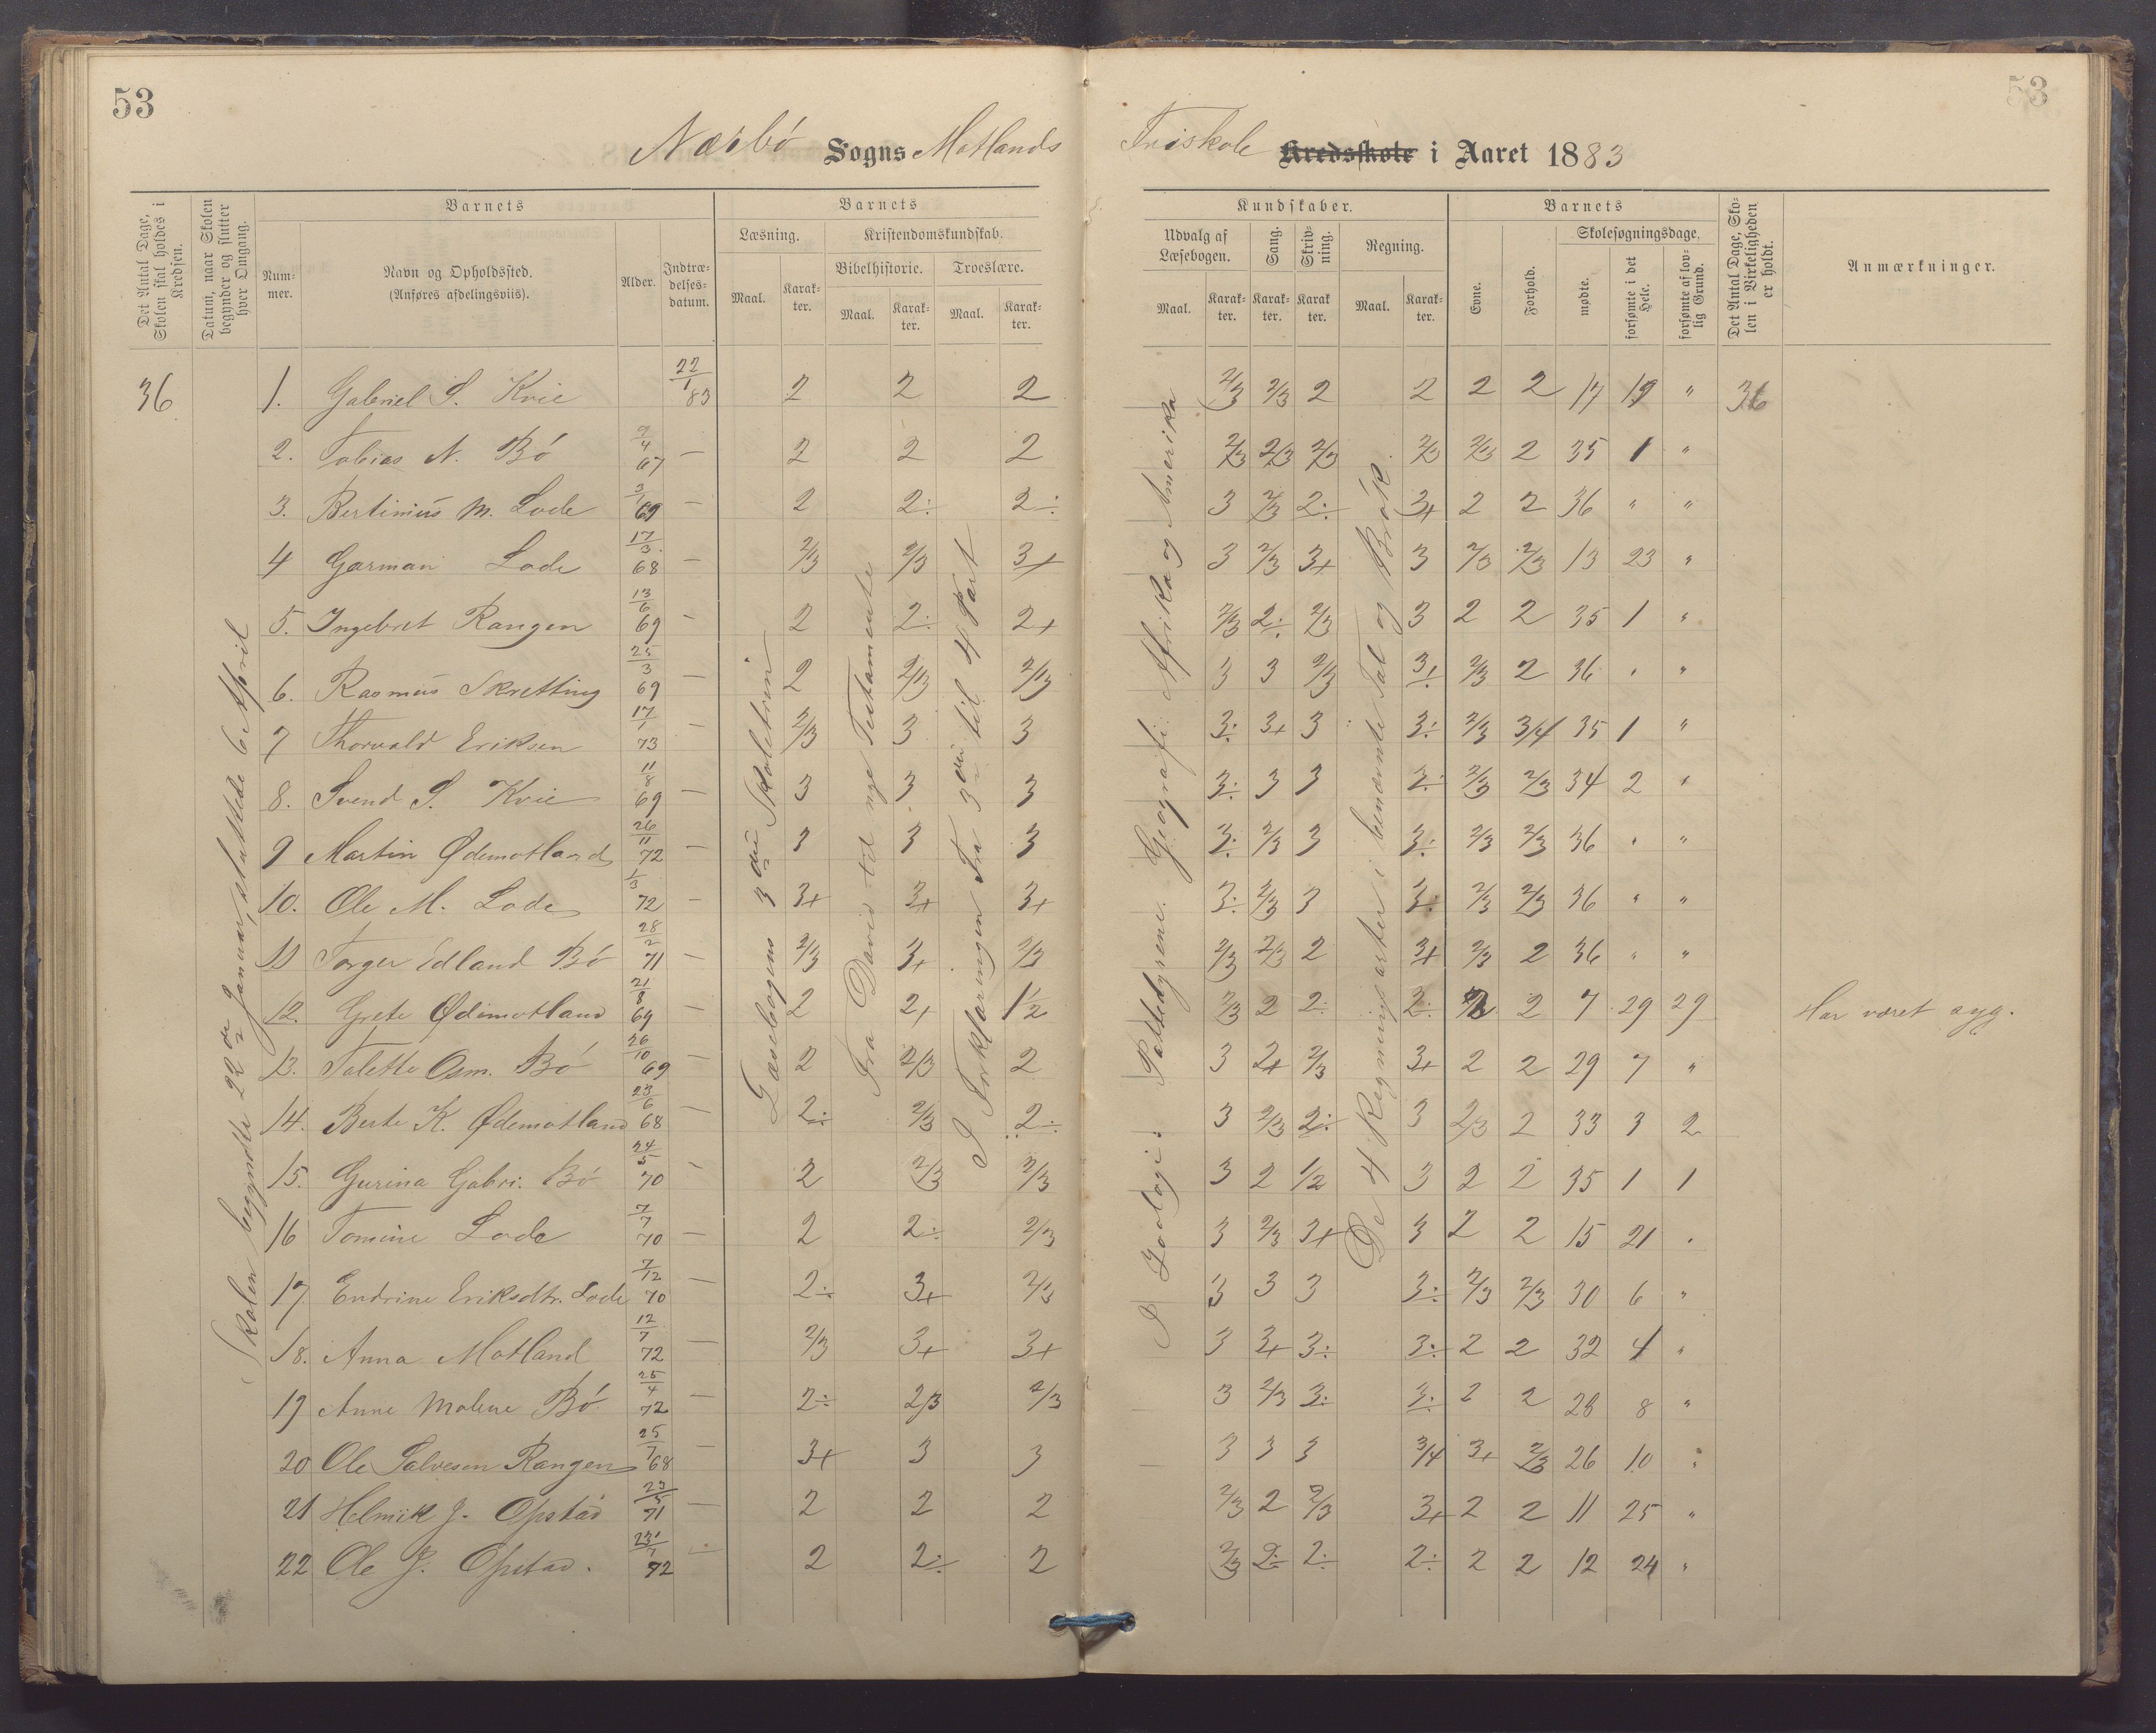 53
53
Nærbø Sogns Motlands Friskole Kredsskole i Aaret 1883
Det Antal Dage, Skolen skal holdes i Kredsen.
Datum, naar Skolen begynder og slutter hver Omgang.
Barnets
Nummer.
Navn og Opholdssted.
(Anføres afdelingsviis).
Alder.
Indtrædelsesdatum.
Barnets
Læsning.
Maal.
Karakter.
Kristendomskundskab.
Bibelhistorie.
Maal.
Karakter.
Troeslære.
Maal.
Karakter.
Kundskaber.
Udvalg af Læsebogen.
Maal.
Karakter.
Sang.
Karakter.
Skrivning.
Karakter.
Regning.
Maal.
Karakter.
Barnets
Evne.
Forhold.
Skolesøgningsdage,
mødte.
forsømte i det Hele.
forsømte af lovlig Grund.
Det Antal Dage, Skolen i Virkeligheden er holdt.
Anmærkninger.
Skolen begyndte 22de Januar, sluttede 6 April
Læsebogens 3die Skoletrin
Fra David til nye Testamente
I Forklaringen Fra 3die til 4 Part
I Zoologi: Pattedyrene. Geografi: Afrika og Amerika
De 4 Regningsarter i benævnte Tal og Brøk
36 1. Gabriel S. Kvie 22/1 83 2 2 2 2/3 2/3 2 2 2 2 17 19 " 36
2. Tobias N. Bø 9/4 67 — 2 2 2 2/3 2/3 2/3 2/3 2/3 2 35 1 "
3. Bertinius M. Lode 3/1 69 — 2 2÷ 2÷ 3 2/3 2÷ 3+ 2 2 36 " "
4 Garman Lode 17/3 68 — 2/3 2/3 3+ 3 2/3 3+ 3 2/3 2/3 13 23 "
5. Ingebret Rangen 13/6 69 — 2 2÷ 2+ 2/3 2÷ 2/3 3 2 2 35 1 "
6. Rasmus Skretting 25/3 69 — 2 2/3 2/3 3 3 2/3 3+ 2/3 2 36 " "
7 Thorvald Eriksen 17/1 73 — 2/3 3 3 3÷ 3+ 3 3÷ 2/3 3/4 35 1 "
8. Svend S. Kvie 11/8 69 — 3 3 3 3÷ 3 3 3÷ 2/3 2/3 34 2 "
9 Martin Ødemotland 26/11 72 — 3 3 3 3÷ 2/3 3 3÷ 2/3 2/3 36 " "
10. Ole M. Lode 1/3 72 — 3+ 3+ 3+ 3÷ 2/3 3 3÷ 2/3 2/3 36 " "
11 Torger Edland Bø 28/2 71 — 2/3 3+ 2/3 2/3 2/3 2 3+ 2/3 2 36 " "
12. Grete Ødemotland 21/8 69 — 2 2+ 1/2 2/3 2 2÷ 2÷ 2 2 7 29 29 Har været syg.
13. Talette Osm. Bø 26/10 69 — 2 2/3 2 3 2+ 2/3 3+ 2 2 29 7 "
14. Berte K. Ødemotland 23/6 68 — 2÷ 2/3 2÷ 3 2/3 2÷ 3 2/3 2 33 3 2
15. Gurina Gabri. Bø 24/5 70 — 2 2/3 2/3 3 2 1/2 3 2 2 35 1 1
16 Tomine Lode 7/7 70 — 2 2÷ 2/3 3 2/3 3+ 3 2 2 15 21 "
17. Endrine Eriksdtr. Lode 7/12 70 — 2÷ 3+ 2/3 3 3 3 3÷ 2/3 2/3 30 6 "
18. Anna Motland 12/7 72 — 2/3 3+ 3+ 3 3+ 3÷ 3÷ 2 2 32 4 "
19 Anne Malene Bø 25/4 72 — 2÷ 2/3 2/3 3 2/3 3÷ 3÷ 2 2 28 8 "
20 Ole Salvesen Rangen 25/7 68 — 3+ 3 3 3 3 3 3/4 3+ 2/3 26 10 "
21 Helmik J. Opstad 23/5 71 — 2 2 2 2/3 2 2/3 3+ 2 2 11 25 "
22 Ole J. Opstad. 23/7 72 — 2 2÷ 2 2/3 2÷ 2÷ 2÷ 2 2 12 24 "